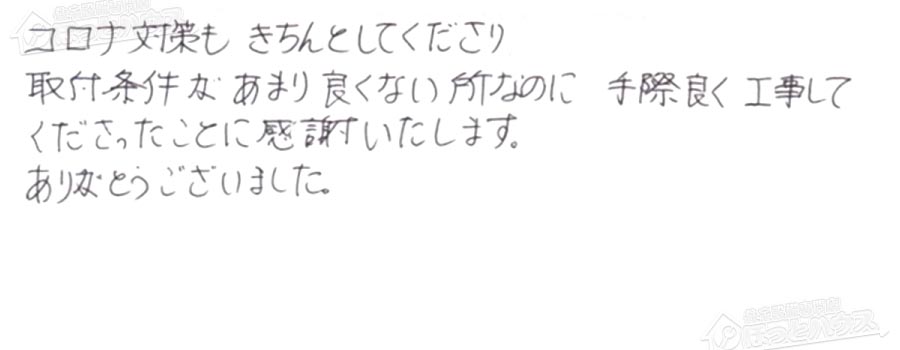 コロナ対策も きちんとしてくださり
取付条件が あまり良くない所なのに 手際良く工事して
くださったことに感謝いたします。
ありがとうございました。
ほっとハウス